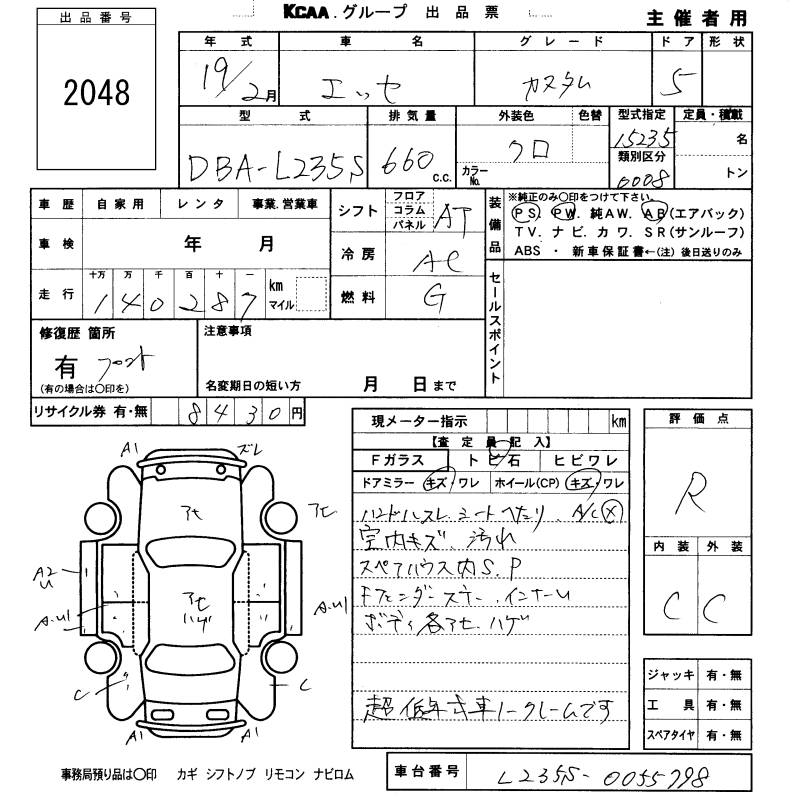 KCAA.グループ 出品票 主催者用
出品番号
2048
年式 車名 グレード ドア 形状
19/2月 エッセ カスタム 5
型式 排気量 外装色 色替 型式指定 定員・積載
DBA-L235S 660 c.c. クロ カラーNo. 15235 名
類別区分
0008 トン
車歴 自家用 レンタ 事業.営業車
車検 年 月
走行 十万 万 千 百 十 一
140287 km マイル
シフト フロア コラム パネル AT
冷房 AC
燃料 G
装備品
※純正のみ〇印をつけて下さい。
PS PW 純AW. AB(エアバック)
TV. ナビ. カワ. SR(サンルーフ)
ABS ・ 新車保証書←(注) 後日送りのみ
セールスポイント
修復歴 箇所
有 フロント
(有の場合は〇印を)
注意事項
名変期日の短い方 月 日まで
リサイクル券 有・無 8430円
現メーター指示 km
【査定員記入】
Fガラス トビ石 ヒビワレ
ドアミラー キズ・ワレ ホイール(CP) キズ・ワレ
ハンドルスレ シートヘタリ、A/C X
室内キズ、汚れ
スペアハウス内S.P
Fフェンダーステー.インナーU
ボディ各アセ.ハゲ
超低年式車ノークレームです
評価点
R
内装 外装
C C
ジャッキ 有・無
工具 有・無
スペアタイヤ 有・無
A1 ズレ
アセ アセ
A2
U
アセ
ハゲ
A.U1 A.U1
C C
A1 A1
事務局預り品は〇印 カギ シフトノブ リモコン ナビロム
車台番号 L235S-0055798